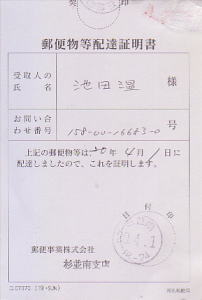 郵便物等配達証明書
受取人の
氏名 池田温 様
お問い合
わせ番号 158-00-16683-0 号
上記の郵便物等は、20年4月1日に
配達しましたので、これを証明します。
日付印
郵便事業株式会社
杉並南支店